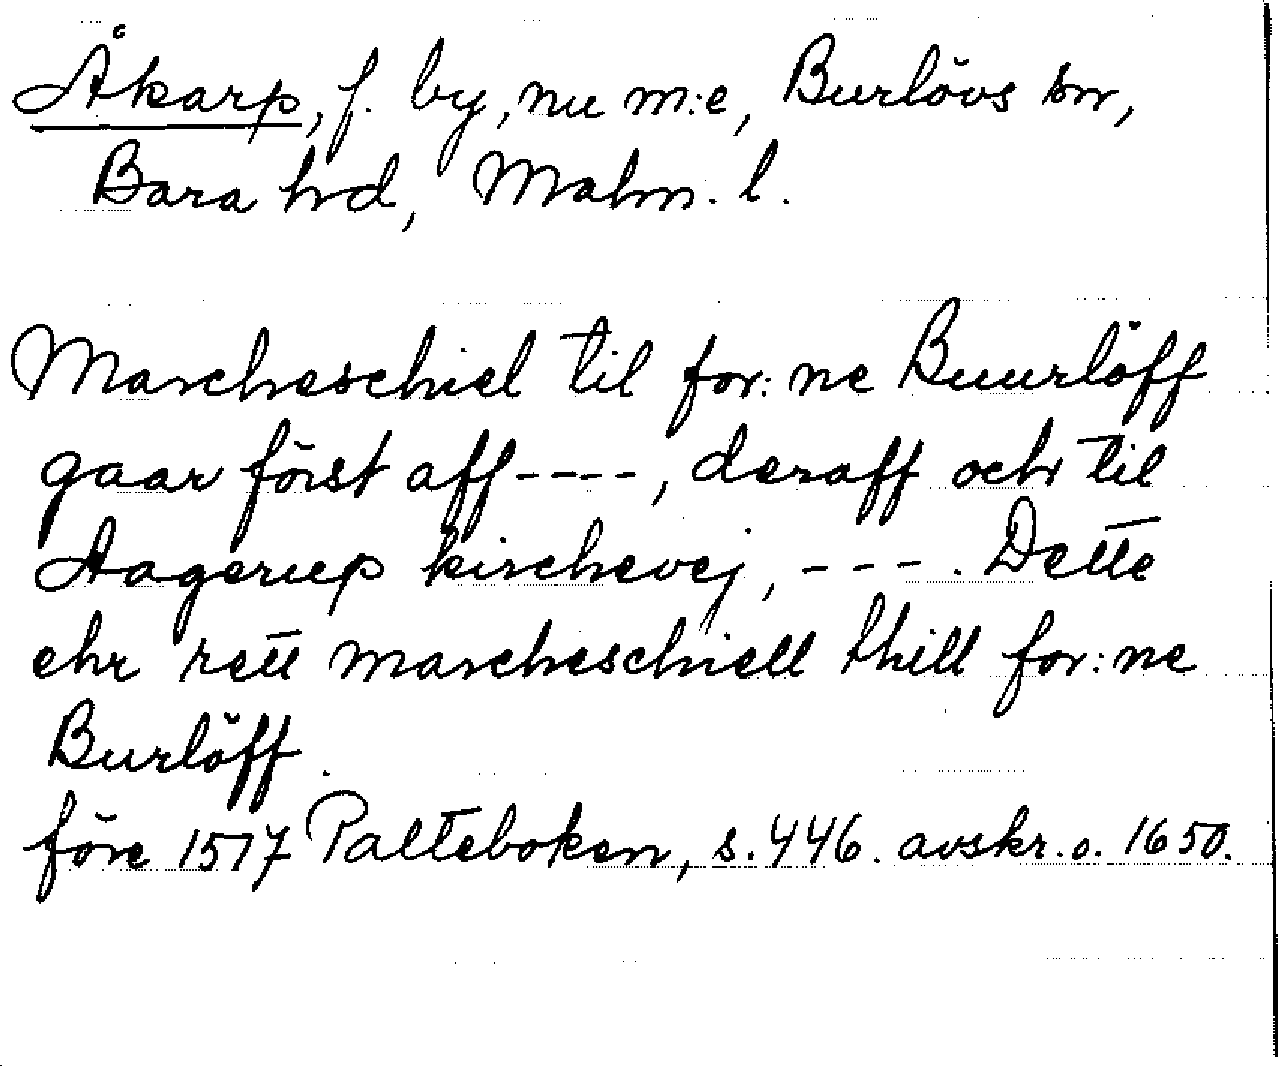 Åkarp, f. by, nu m:e, Burlövs sn,
Bara hd, Malm. l.
Marcheschiel til for:ne Buurlöff
gaar först aff----, deraff och til
Aageruep kirchevej, ---. Dette
ehr rett marcheschiell thill for:ne
Burlöff.
före 1517 Palteboken, s. 446. avskr. o. 1650.